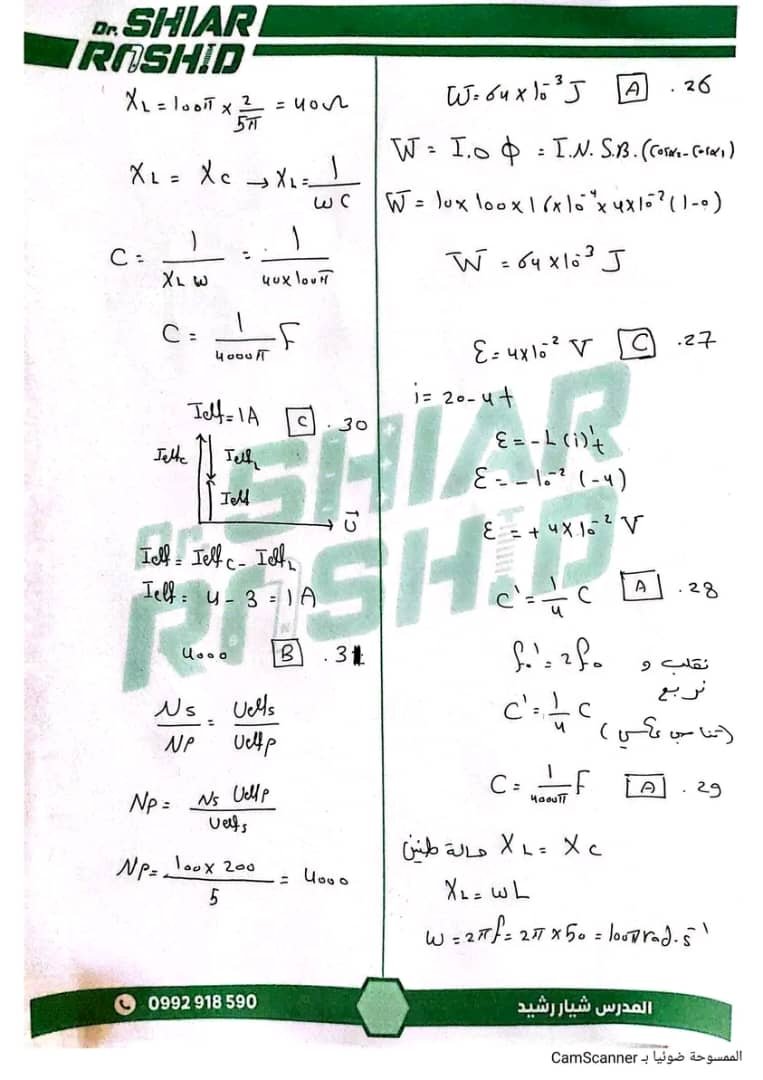 Dr. SHIAR
RASHID
W = 64 x 10⁻³ J [A] .26
W = I.Δϕ = I.N.S.B.(cosα₂ - cosα₁)
W = 10 x 100 x 16 x 10⁻⁴ x 4 x 10⁻² (1-0)
W = 64 x 10⁻³ J
ε = 4 x 10⁻² V [C] .27
i = 20 - 4t
ε = -L (i)'t
ε = - 10⁻² (-4)
ε = + 4 x 10⁻² V
C' = 1/4 C [A] .28
f₀' = 2f₀ نقلب و
نربع
C' = 1/4 C (تناسب عكسي)
C = 1/4000π F [A] .29
حالة طنين XL = XC
XL = ωL
ω = 2πf = 2π x 50 = 100π rad.s⁻¹
XL = 100π x 2/5π = 40Ω
XL = XC → XL = 1/ωC
C = 1/XL ω = 1/40x100π
C = 1/4000π F
Ieff = 1A [C] .30
IeffC IeffL
Ieff
U⃗
Ieff = IeffC - IeffL
Ieff = 4 - 3 = 1A
4000 [B] .31
Ns/NP = Ueffs/UeffP
NP = Ns UeffP/Ueffs
NP = 100 x 200/5 = 4000
Dr. SHIAR
RASHID
0992 918 590
المدرس شيار رشيد
الممسوحة ضوئيا بـ CamScanner